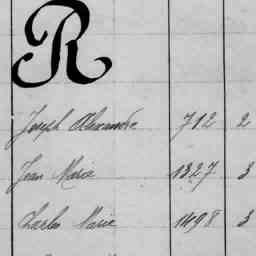 R
Joseph Alexandre 712 2
Jean Marie 1327 3
Charles Marie 1498 3